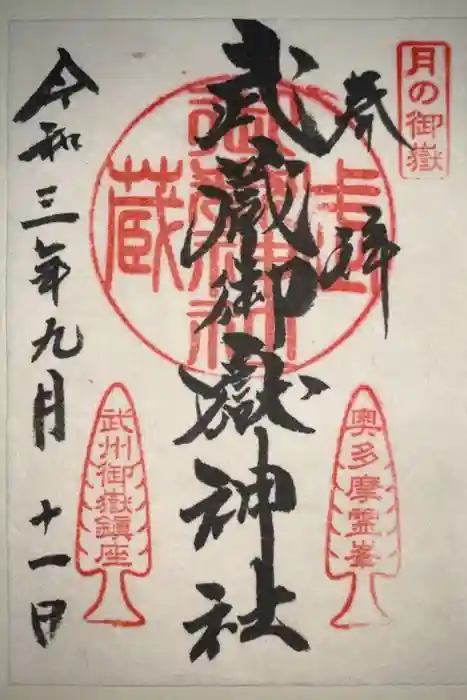 月の御嶽
奉拝
武蔵御嶽神社
武蔵御嶽神社
奥多摩霊峯
武州御嶽鎮座
令和三年九月十一日